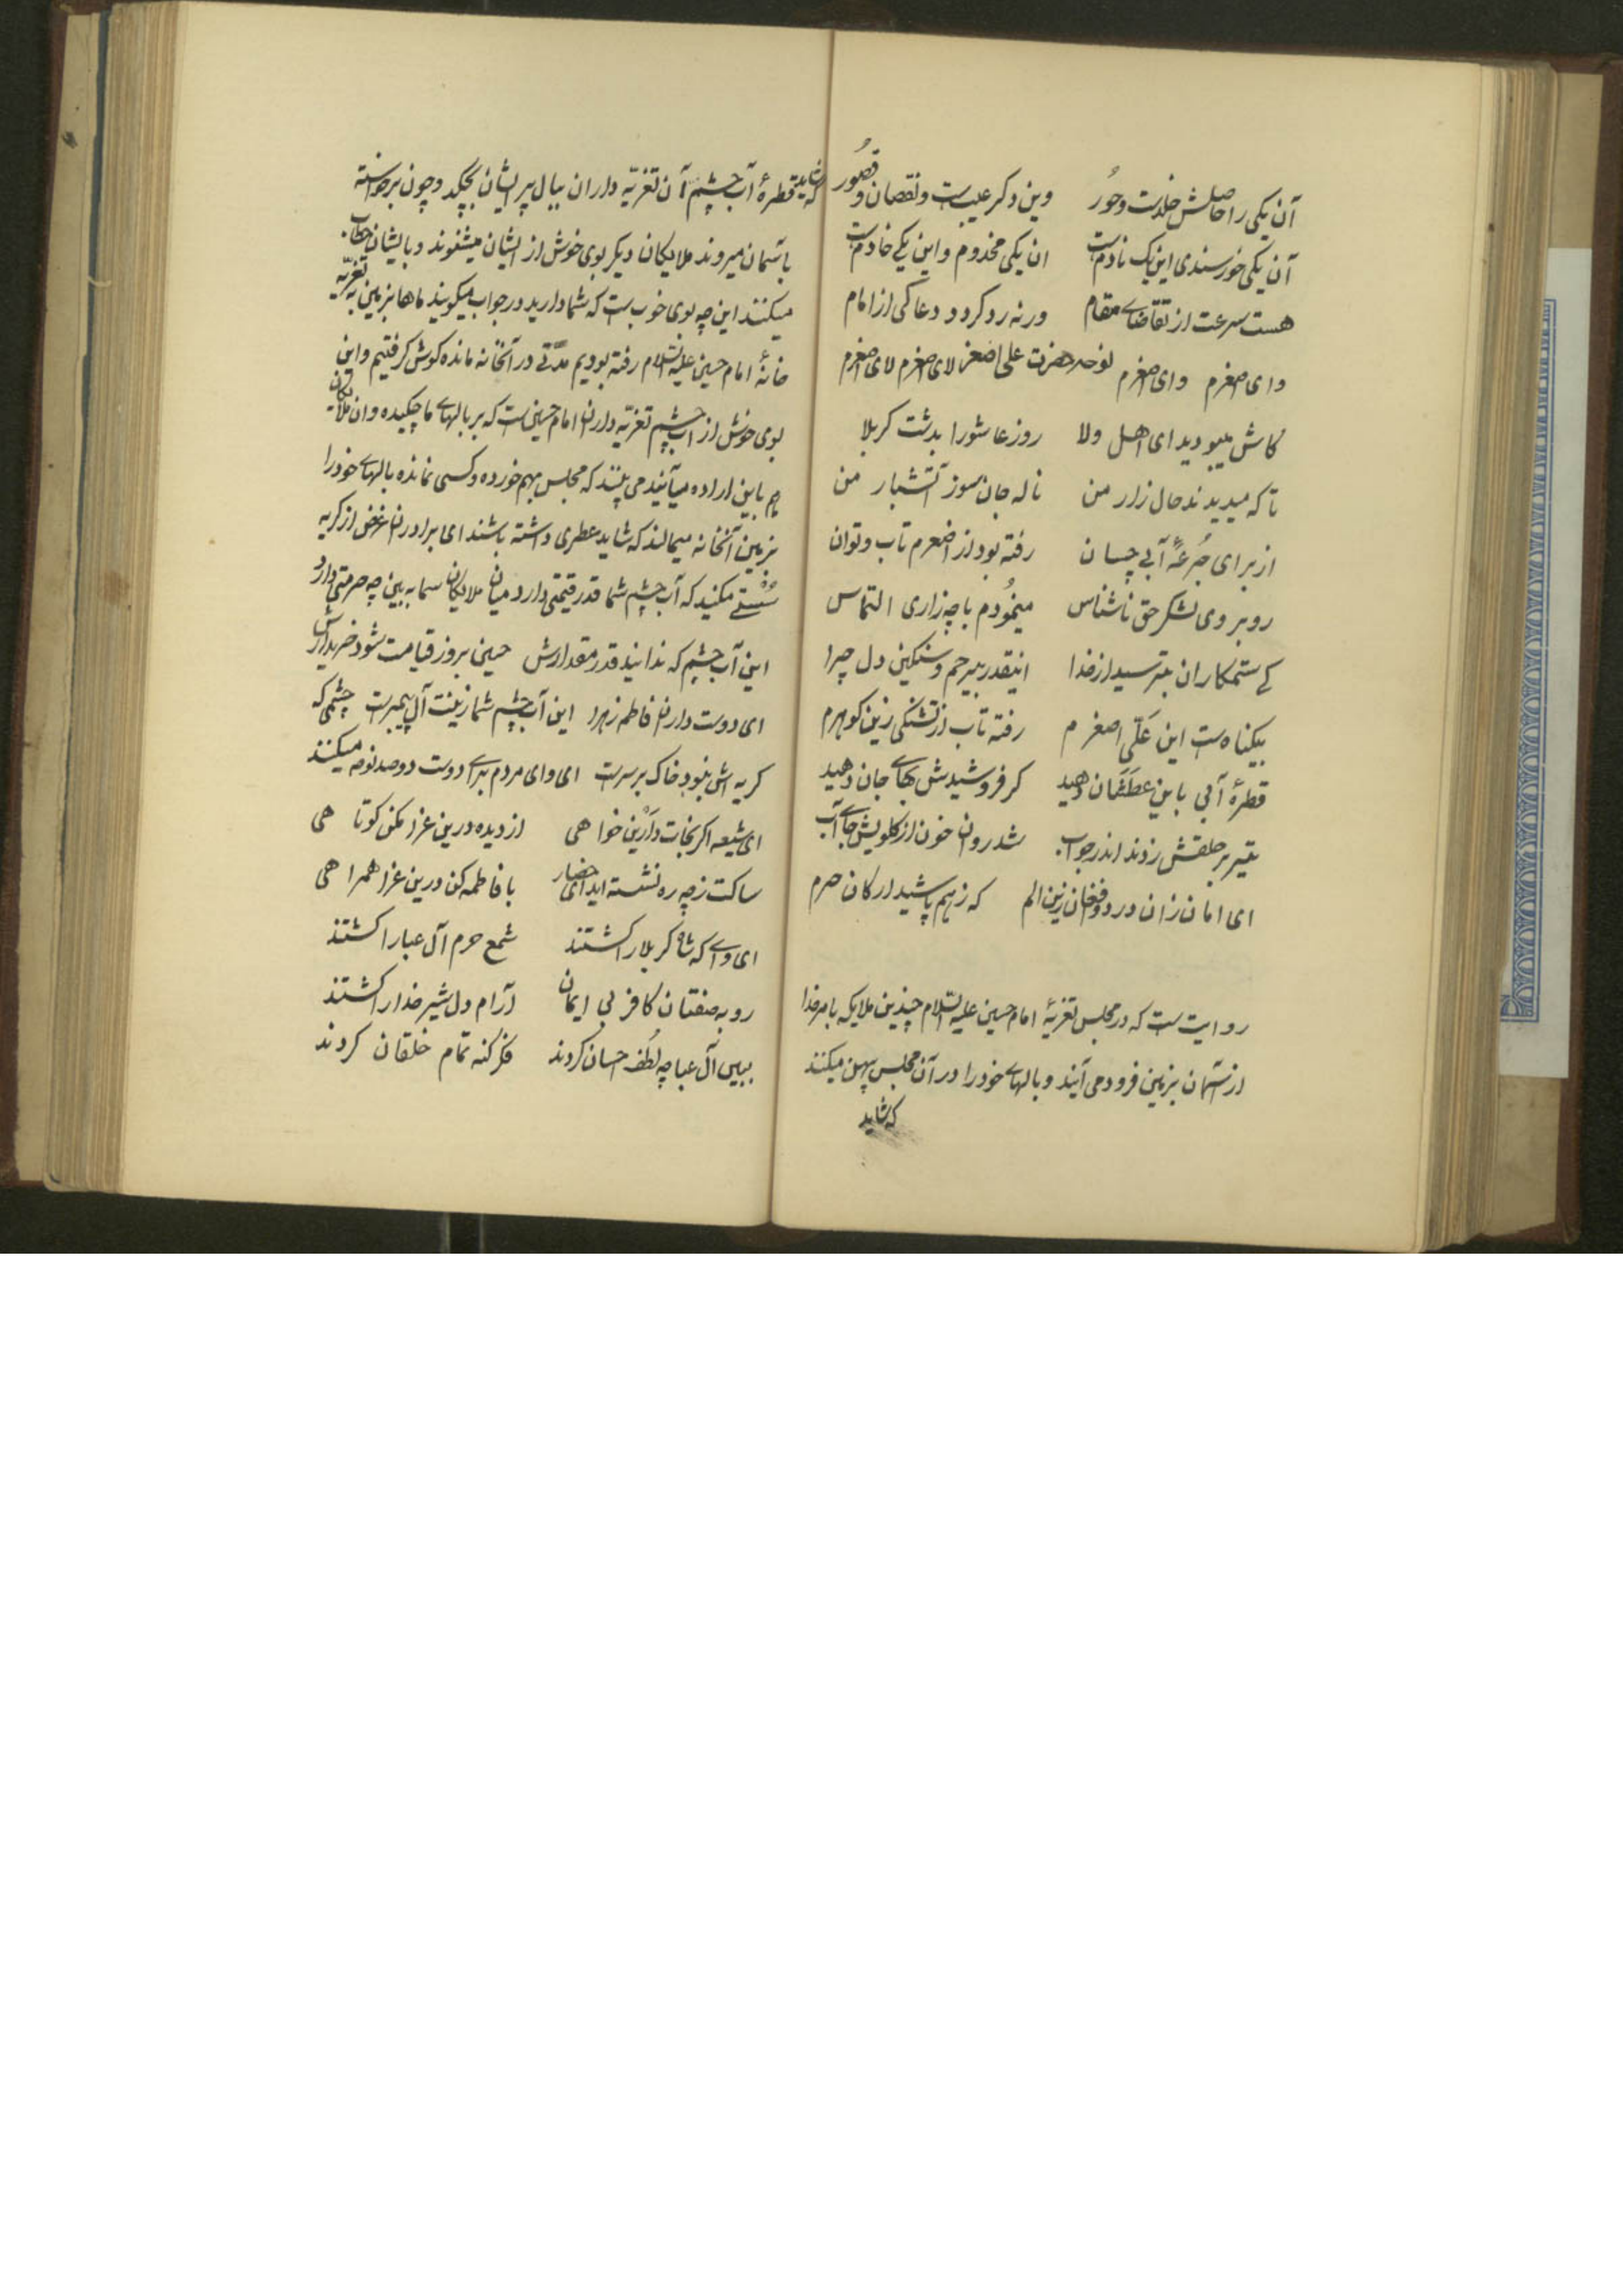 آن یکی را حاصلش خلدست وحُور وین دکر عیبست ونقصان و قصُور
آن یکی خورسندی این یک نادمست ان یکی مخدوم واین یکے خادمست
هست سرعت از تقاضاے مقام ورنه رد کردد دعاکی از امام
وای اصغرم وای اصغرم نوحه حضرت علی اصغر لای اصغرم لای اصغرم
کاش میبودید ای اهل ولا روز عاشورا بدشت کربلا
تا که میدیدند حال زار من ناله جان سوز آتشبار من
از برای جُرعهٔ آبی چسان رفته بود از اصغرم تاب وتوان
روبروی لشکر حق ناشناس مینمُودم با چه زاری التماس
کے ستمکاران بترسید از خدا اینقدر بیرحم وسنکین دل چرا
بیکناهست این عَلّی اصغرم رفته تاب از تشنکی زین کوهرم
قطرهٔ آبی باین عطشان دهید کر فروشیدش بهاے جان دهید
تیر بر حلقش زدند اندر جواب شد روان خون از کلویش جاے آب
ای امان زان درد وفغان زین الم که زهم پاشید ارکان حرم
روایت ست که در مجلس تعزیهٔ امام حسین علیه السّلام چندین ملایکه بامر خدا
از آسمان بزمین فرود می آیند وبالهاے خود را در آن مجلس پهن میکنند
که شاید
که شاید قطرهٔ آب چشم آن تعزیّه داران ببال پر ایشان بچکد وچون برخواسته
باسمان میروند ملایکان دیکر بوی خوش از ایشان میشنوند وبایشان خطاب
میکنند این چه بوی خوب ست که شما دارید در جواب میکویند ماها بزمین به تعزیّه
خانهٔ امام حسین علیه السّلام رفته بودیم مدّتے در آنخانه مانده کوش کرفتیم واین
بوی خوش از آب چشم تعزیّه داران امام حسین ست که بر بالهاے ما چکیده وان ملایکان
هم باین اراده میآیند می بینند که مجلس بهم خورده وکسی نمانده بالهاے خود را
بزمین آنخانه میمالند که شاید عطری داشته باشند ای برادران غرض از کریه
سُستے مکنید که آب چشم شما قدر قیمتی دارد میان ملایکان سما به بین چه حرمتی دارد
این آب چشم که ندانید قدر مقدارش حسین بروز قیامت شود خریدارش
ای دوست داران فاطمه زهرا این آب چشم شما زینت آل پیمبرست چشمی که
کریه اش نبود خاک بر سرست ای وای مردم براے دوست دو صد نوحه میکنند
ای شیعه اکر نجات دارَین خواهی از دیده درین عزا مکن کوتاهی
ساکت ز چه ره نشسته اید ای حضار با فاطمه کن درین عزا همراهی
ای واے که شاه کربلا را کشتند شمع حرم آل عبا را کشتند
روبه صفتان کافر بی ایمان آرام دل شیر خدا را کشتند
ببین آل عبا چه لُطف احسان کردند فکر کنه تمام خلقان کردند